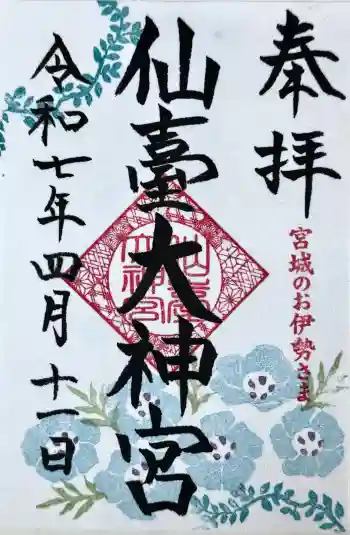 奉拝
宮城のお伊勢さま
仙臺大神宮
令和七年四月十一日